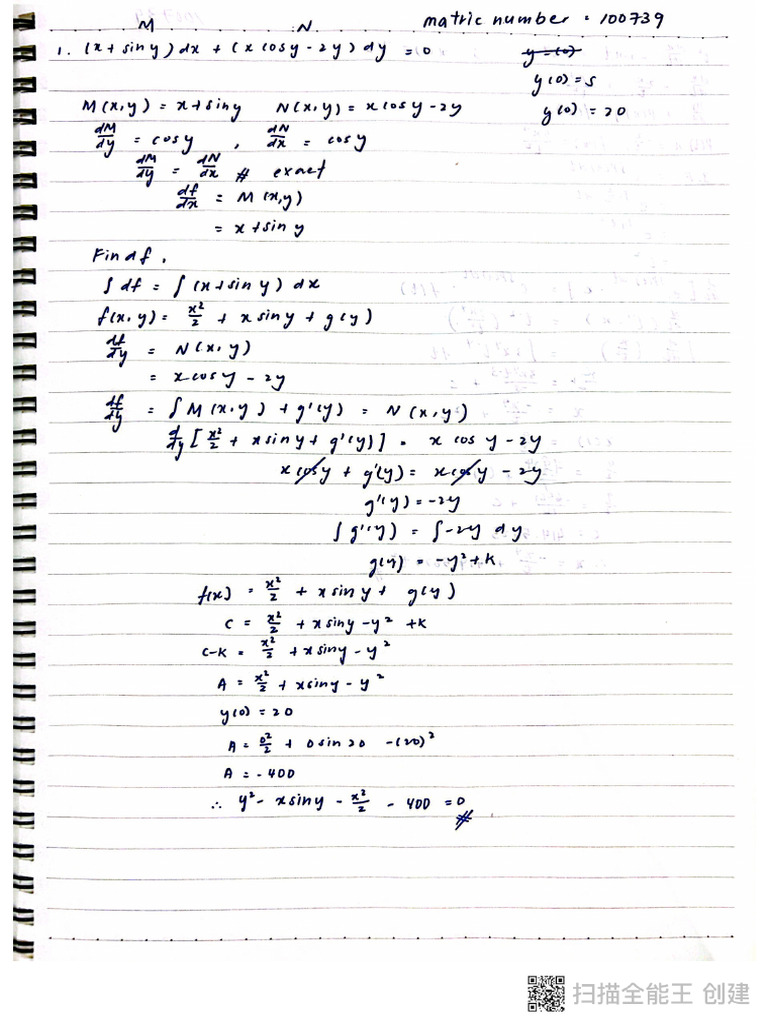 M N matric number = 100739
1. (x + sin y) dx + (x cos y - 2y) dy = 0 y = (0)
y(0) = 5
M(x,y) = x + sin y N(x,y) = x cos y - 2y y(0) = 20
dM/dy = cos y , dN/dx = cos y
dM/dy = dN/dx # exact
df/dx = M(x,y)
= x + sin y
Find f,
∫ df = ∫ (x + sin y) dx
f(x,y) = x²/2 + x sin y + g(y)
df/dy = N(x,y)
= x cos y - 2y
df/dy = ∫ M(x,y) + g'(y) = N(x,y)
d/dy [x²/2 + x sin y + g'(y)] = x cos y - 2y
x cos y + g'(y) = x cos y - 2y
g'(y) = -2y
∫ g'(y) = ∫ -2y dy
g(y) = -y² + k
f(x) = x²/2 + x sin y + g(y)
c = x²/2 + x sin y - y² + k
c-k = x²/2 + x sin y - y²
A = x²/2 + x sin y - y²
y(0) = 20
A = 0²/2 + 0 sin 20 - (20)²
A = -400
∴ y² - x sin y - x²/2 - 400 = 0 #
扫描全能王 创建